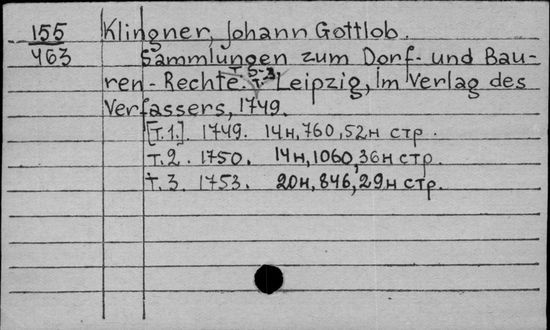 155 Klingner, Johann Gottlob.
463 Sammlungen zum Dorf- und Bau-
ren-Rechte. Leipzig, Im Verlag des
Verfassers, 1749.
[T.1.] 1749. 14н, 760, 52н стр.
Т.2. 1750. 14н, 1060, 36н стр.
Т.3. 1753. 20н, 846, 29н стр.